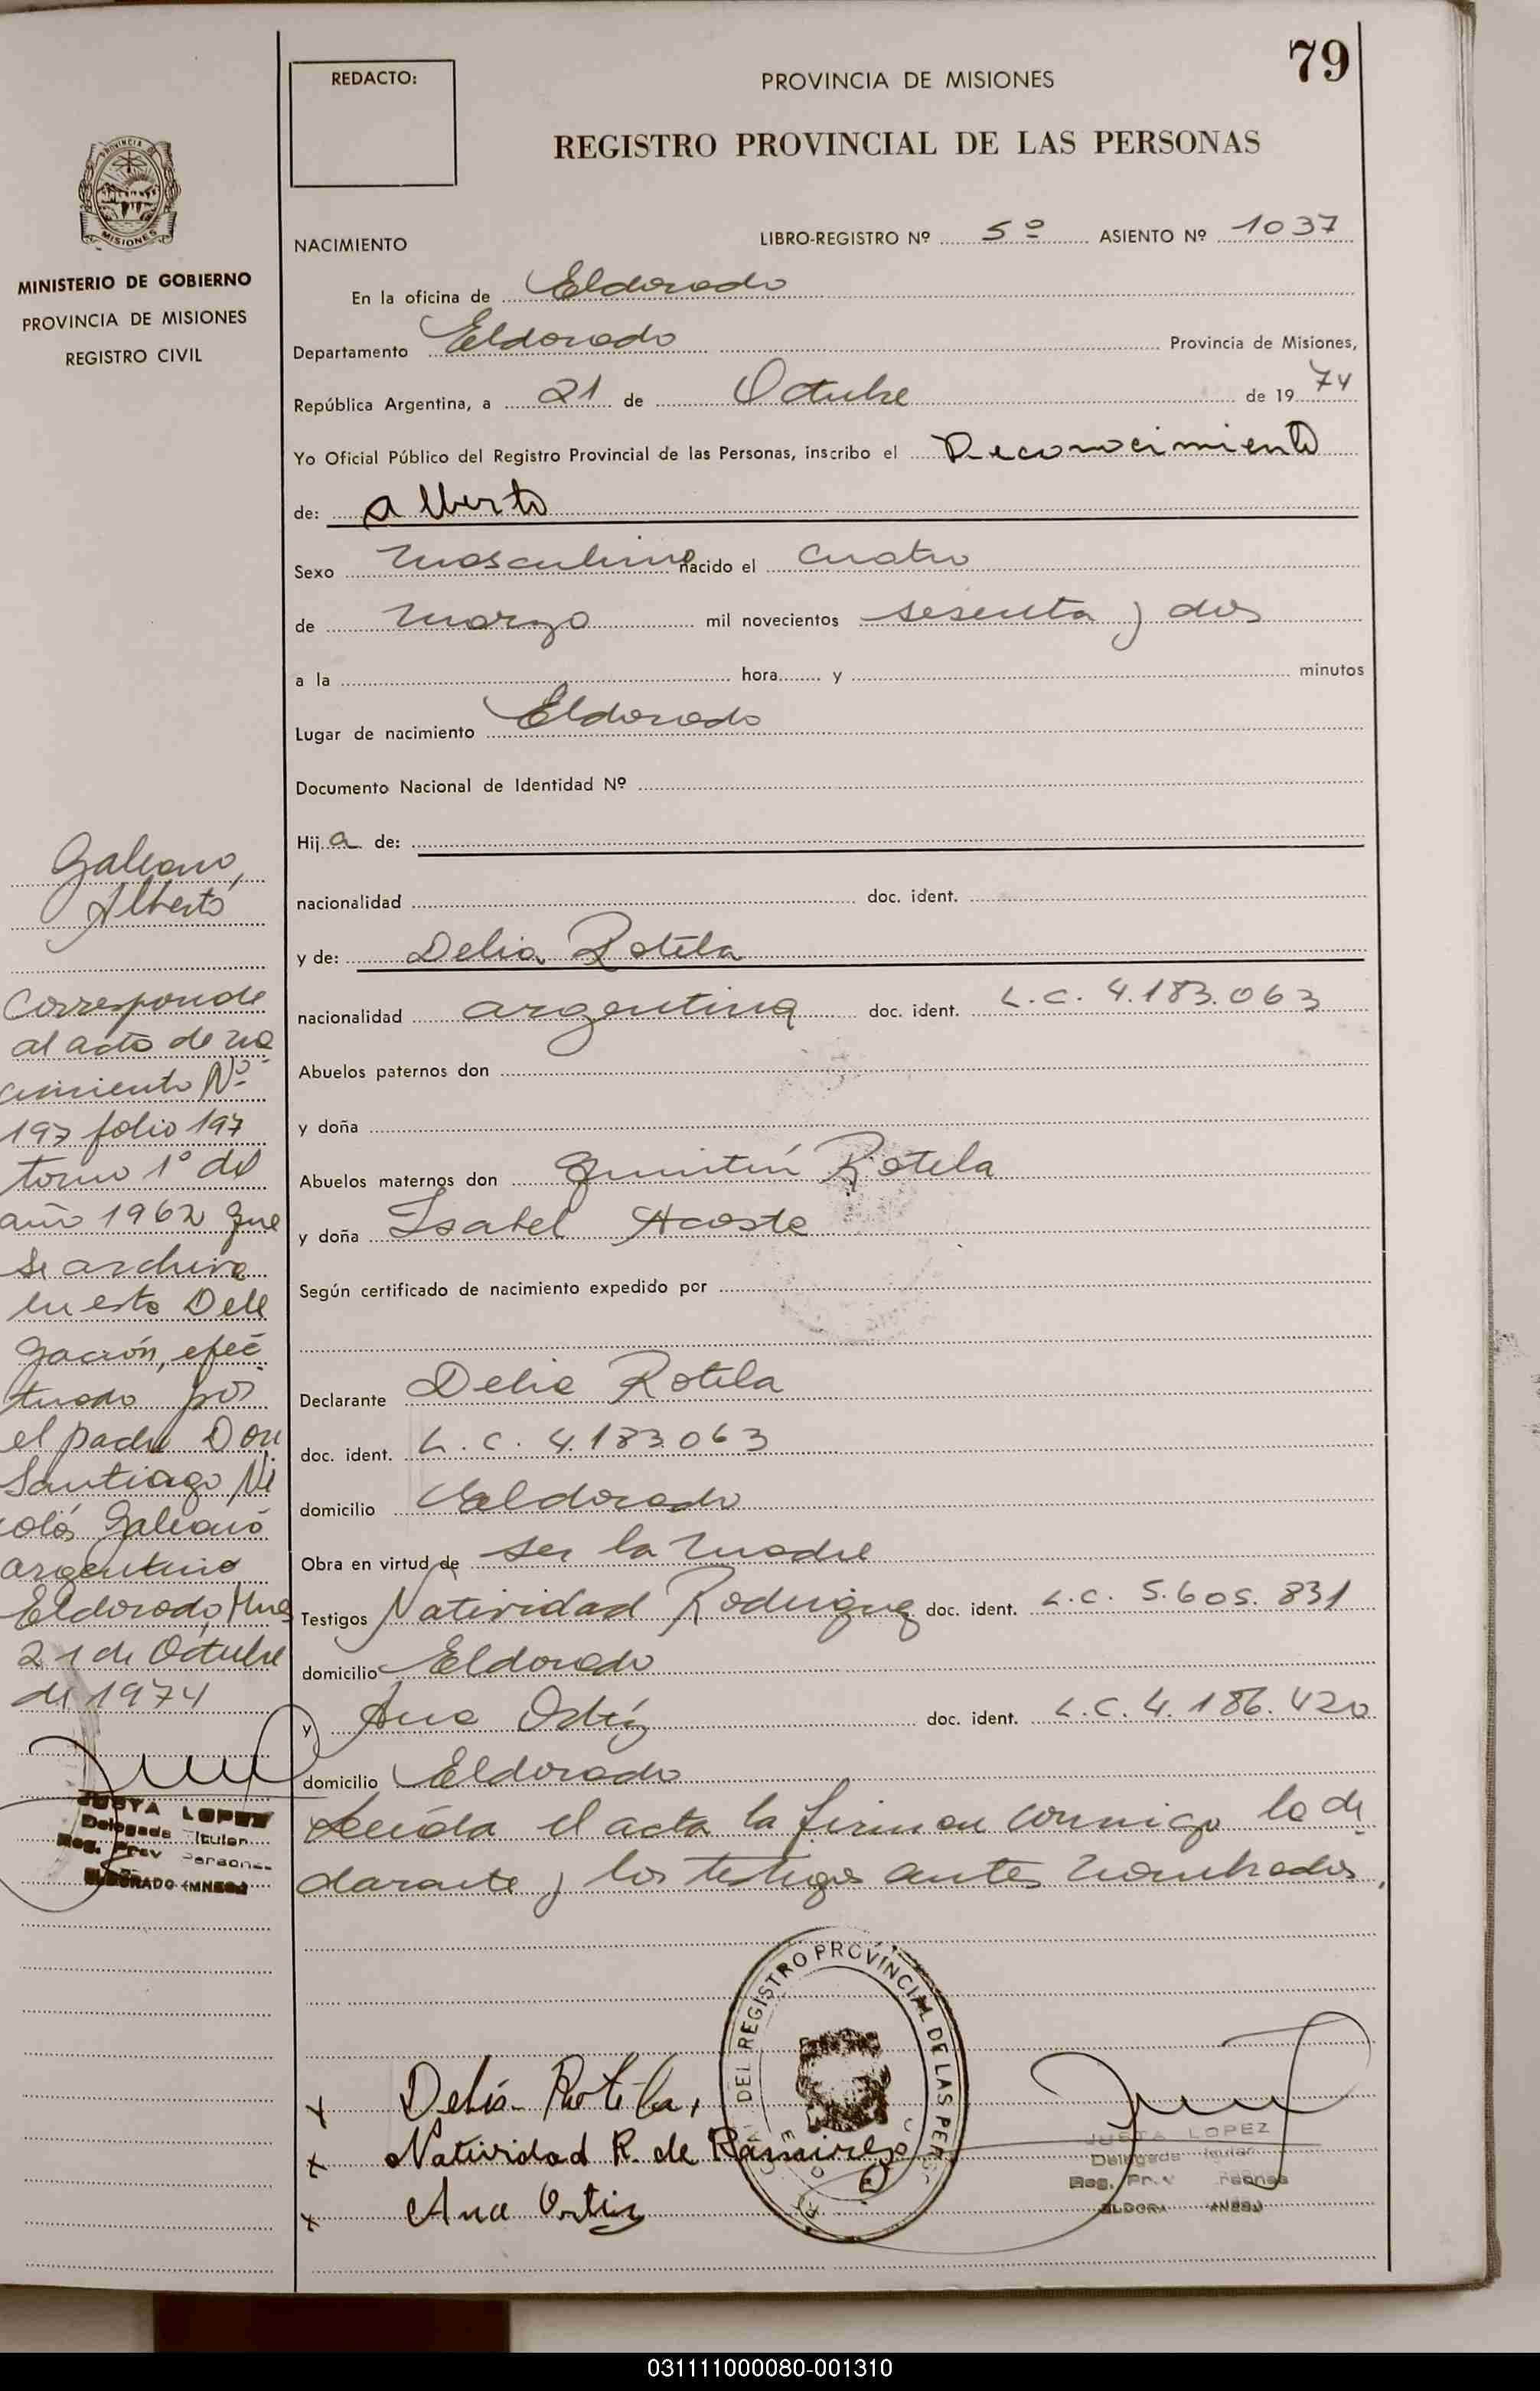 79
REDACTO:
PROVINCIA DE MISIONES
REGISTRO PROVINCIAL DE LAS PERSONAS
PROVINCIA
MISIONES
MINISTERIO DE GOBIERNO
PROVINCIA DE MISIONES
REGISTRO CIVIL
NACIMIENTO
LIBRO-REGISTRO Nº 5º ASIENTO Nº 1037
En la oficina de Eldorado
Departamento Eldorado Provincia de Misiones,
República Argentina, a 21 de Octubre de 19 74
Yo Oficial Público del Registro Provincial de las Personas, inscribo el Reconocimiento
de: Alberto
Sexo Masculino nacido el cuatro
de marzo mil novecientos sesenta y dos
a la hora y minutos
Lugar de nacimiento Eldorado
Documento Nacional de Identidad Nº
Hij a de:
nacionalidad doc. ident.
y de: Delia Rotela
nacionalidad argentina doc. ident. L.C. 4.183.063
Abuelos paternos don
y doña
Abuelos maternos don Quintín Rotela
y doña Isabel Acosta
Según certificado de nacimiento expedido por
Declarante Delia Rotela
doc. ident. L.C. 4.183.063
domicilio Eldorado
Obra en virtud de ser la madre
Testigos Natividad Rodriguez doc. ident. L.C. 5.605.831
domicilio Eldorado
y Ana Ortíz doc. ident. L.C. 4.186.420
domicilio Eldorado
Leída el acta la firman conmigo la de
clarante y los testigos antes nombrados.
Galeano,
Alberto
Corresponde
al acta de na
cimiento Nº
197 folio 197
tomo 1º del
año 1962 que
se archiva
en esta Dele
gación, efec
tuado por
el padre Don
Santiago Ni
colás Galeano
argentino
Eldorado, Mnes
21 de Octubre
de 1974
JUSTA LOPEZ
Delegada Titular
Reg. Prov Personas
ELDORADO (MNES)
DEL REGISTRO PROVINCIAL DE LAS PERS
x Delia Rotela,
x Natividad R. de Ramirez
x Ana Ortiz
JUSTA LOPEZ
Delegada Titular
Reg. Prov
031111000080-001310